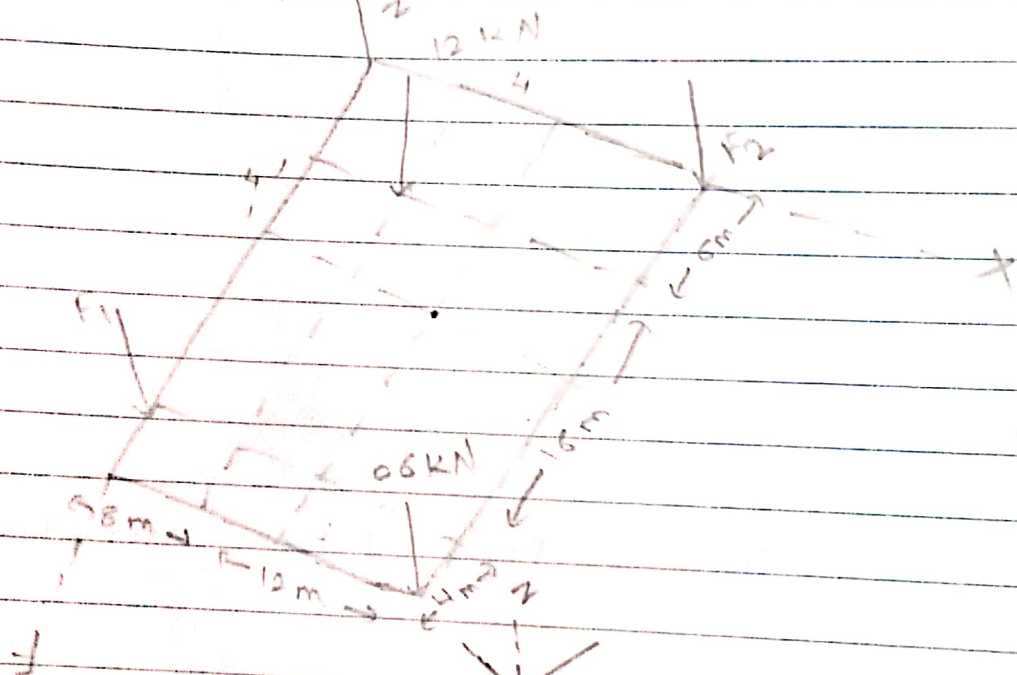 z
12 kN
4
F2
X
6m
4
F1
16m
06KN
8m
12m
4m
z